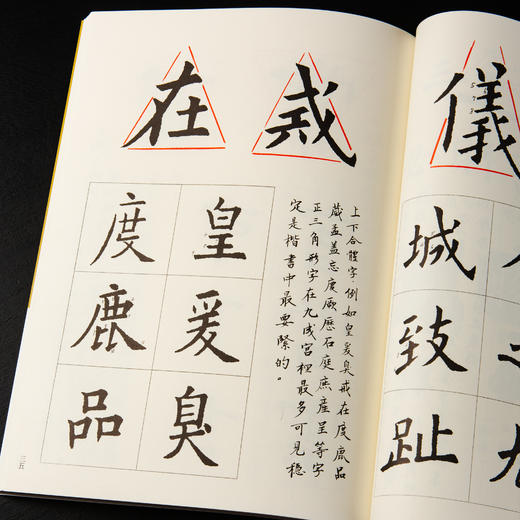 儀
城
致
趾
戒
在
皇
爰
臭
度
鹿
品
上下合體字，例如皇爰臭戒在度鹿品
孟盖忘度厥歷石庭庶産呈等字
正三角形字在九成宮裡最多可見穩
定是楷書中最要緊的。
三五